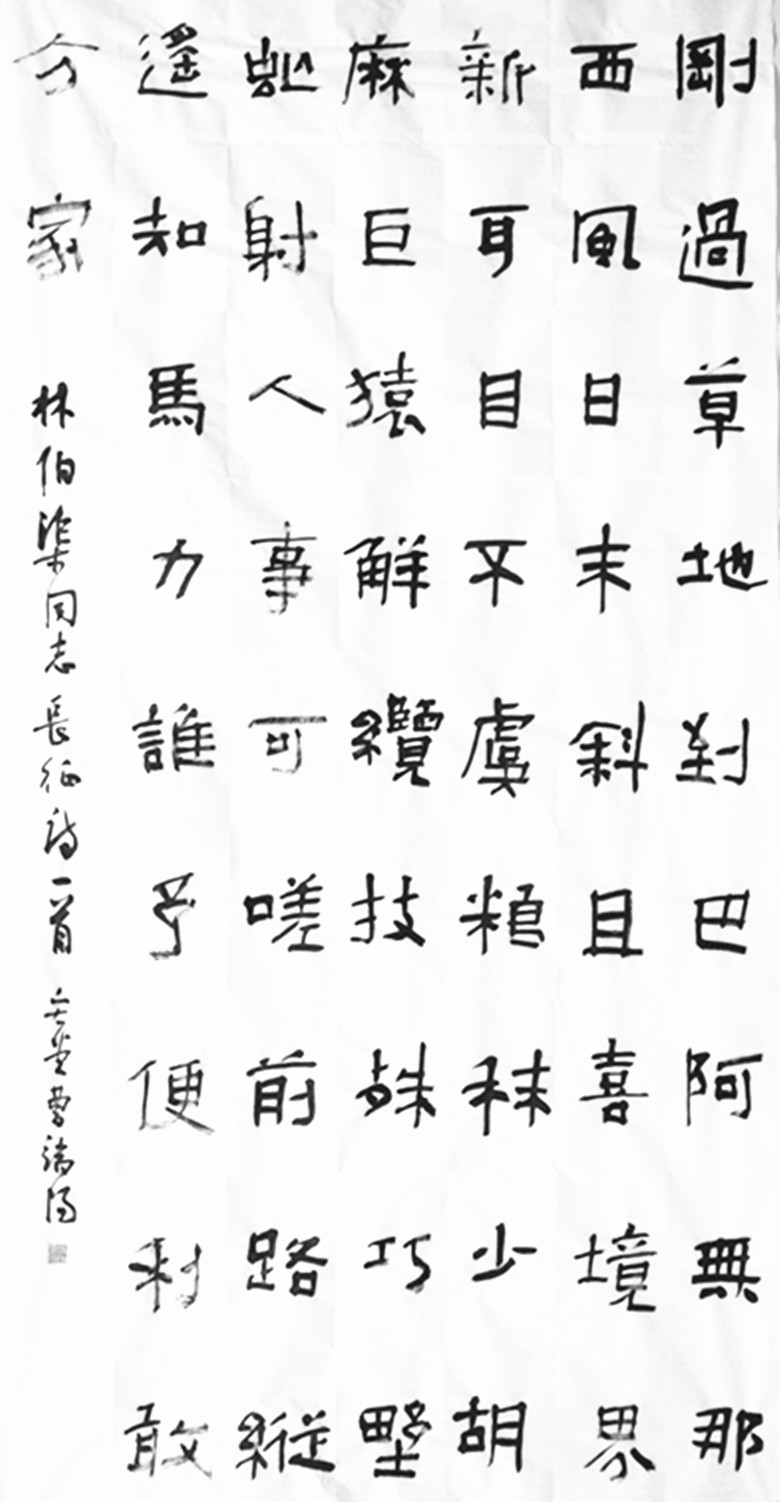 剛過草地到巴阿無那
西風日末斜且喜境界
新耳目不虞粮秣少胡
麻巨猿解纜技殊巧野
射人事可嗟前路縱
遥知馬力誰予便利敢
分家
林伯渠同志長征詩一首